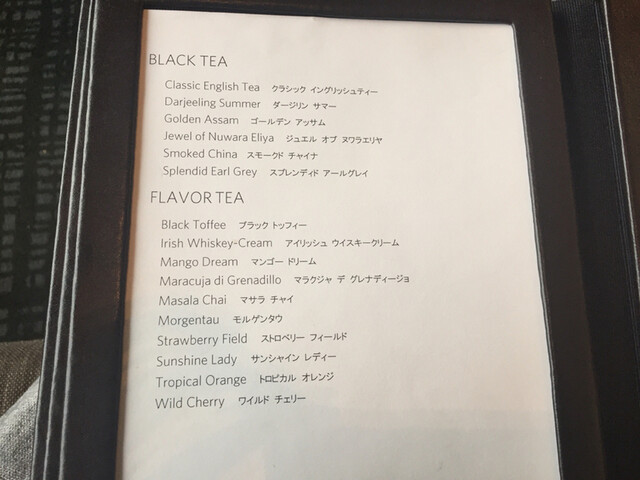 BLACK TEA
Classic English Tea クラシック イングリッシュティー
Darjeeling Summer ダージリン サマー
Golden Assam ゴールデン アッサム
Jewel of Nuwara Eliya ジュエル オブ ヌワラエリヤ
Smoked China スモークド チャイナ
Splendid Earl Grey スプレンディド アールグレイ
FLAVOR TEA
Black Toffee ブラック トッフィー
Irish Whiskey-Cream アイリッシュ ウイスキークリーム
Mango Dream マンゴー ドリーム
Maracuja di Grenadillo マラクジャ デ グレナディージョ
Masala Chai マサラ チャイ
Morgentau モルゲンタウ
Strawberry Field ストロベリー フィールド
Sunshine Lady サンシャイン レディー
Tropical Orange トロピカル オレンジ
Wild Cherry ワイルド チェリー